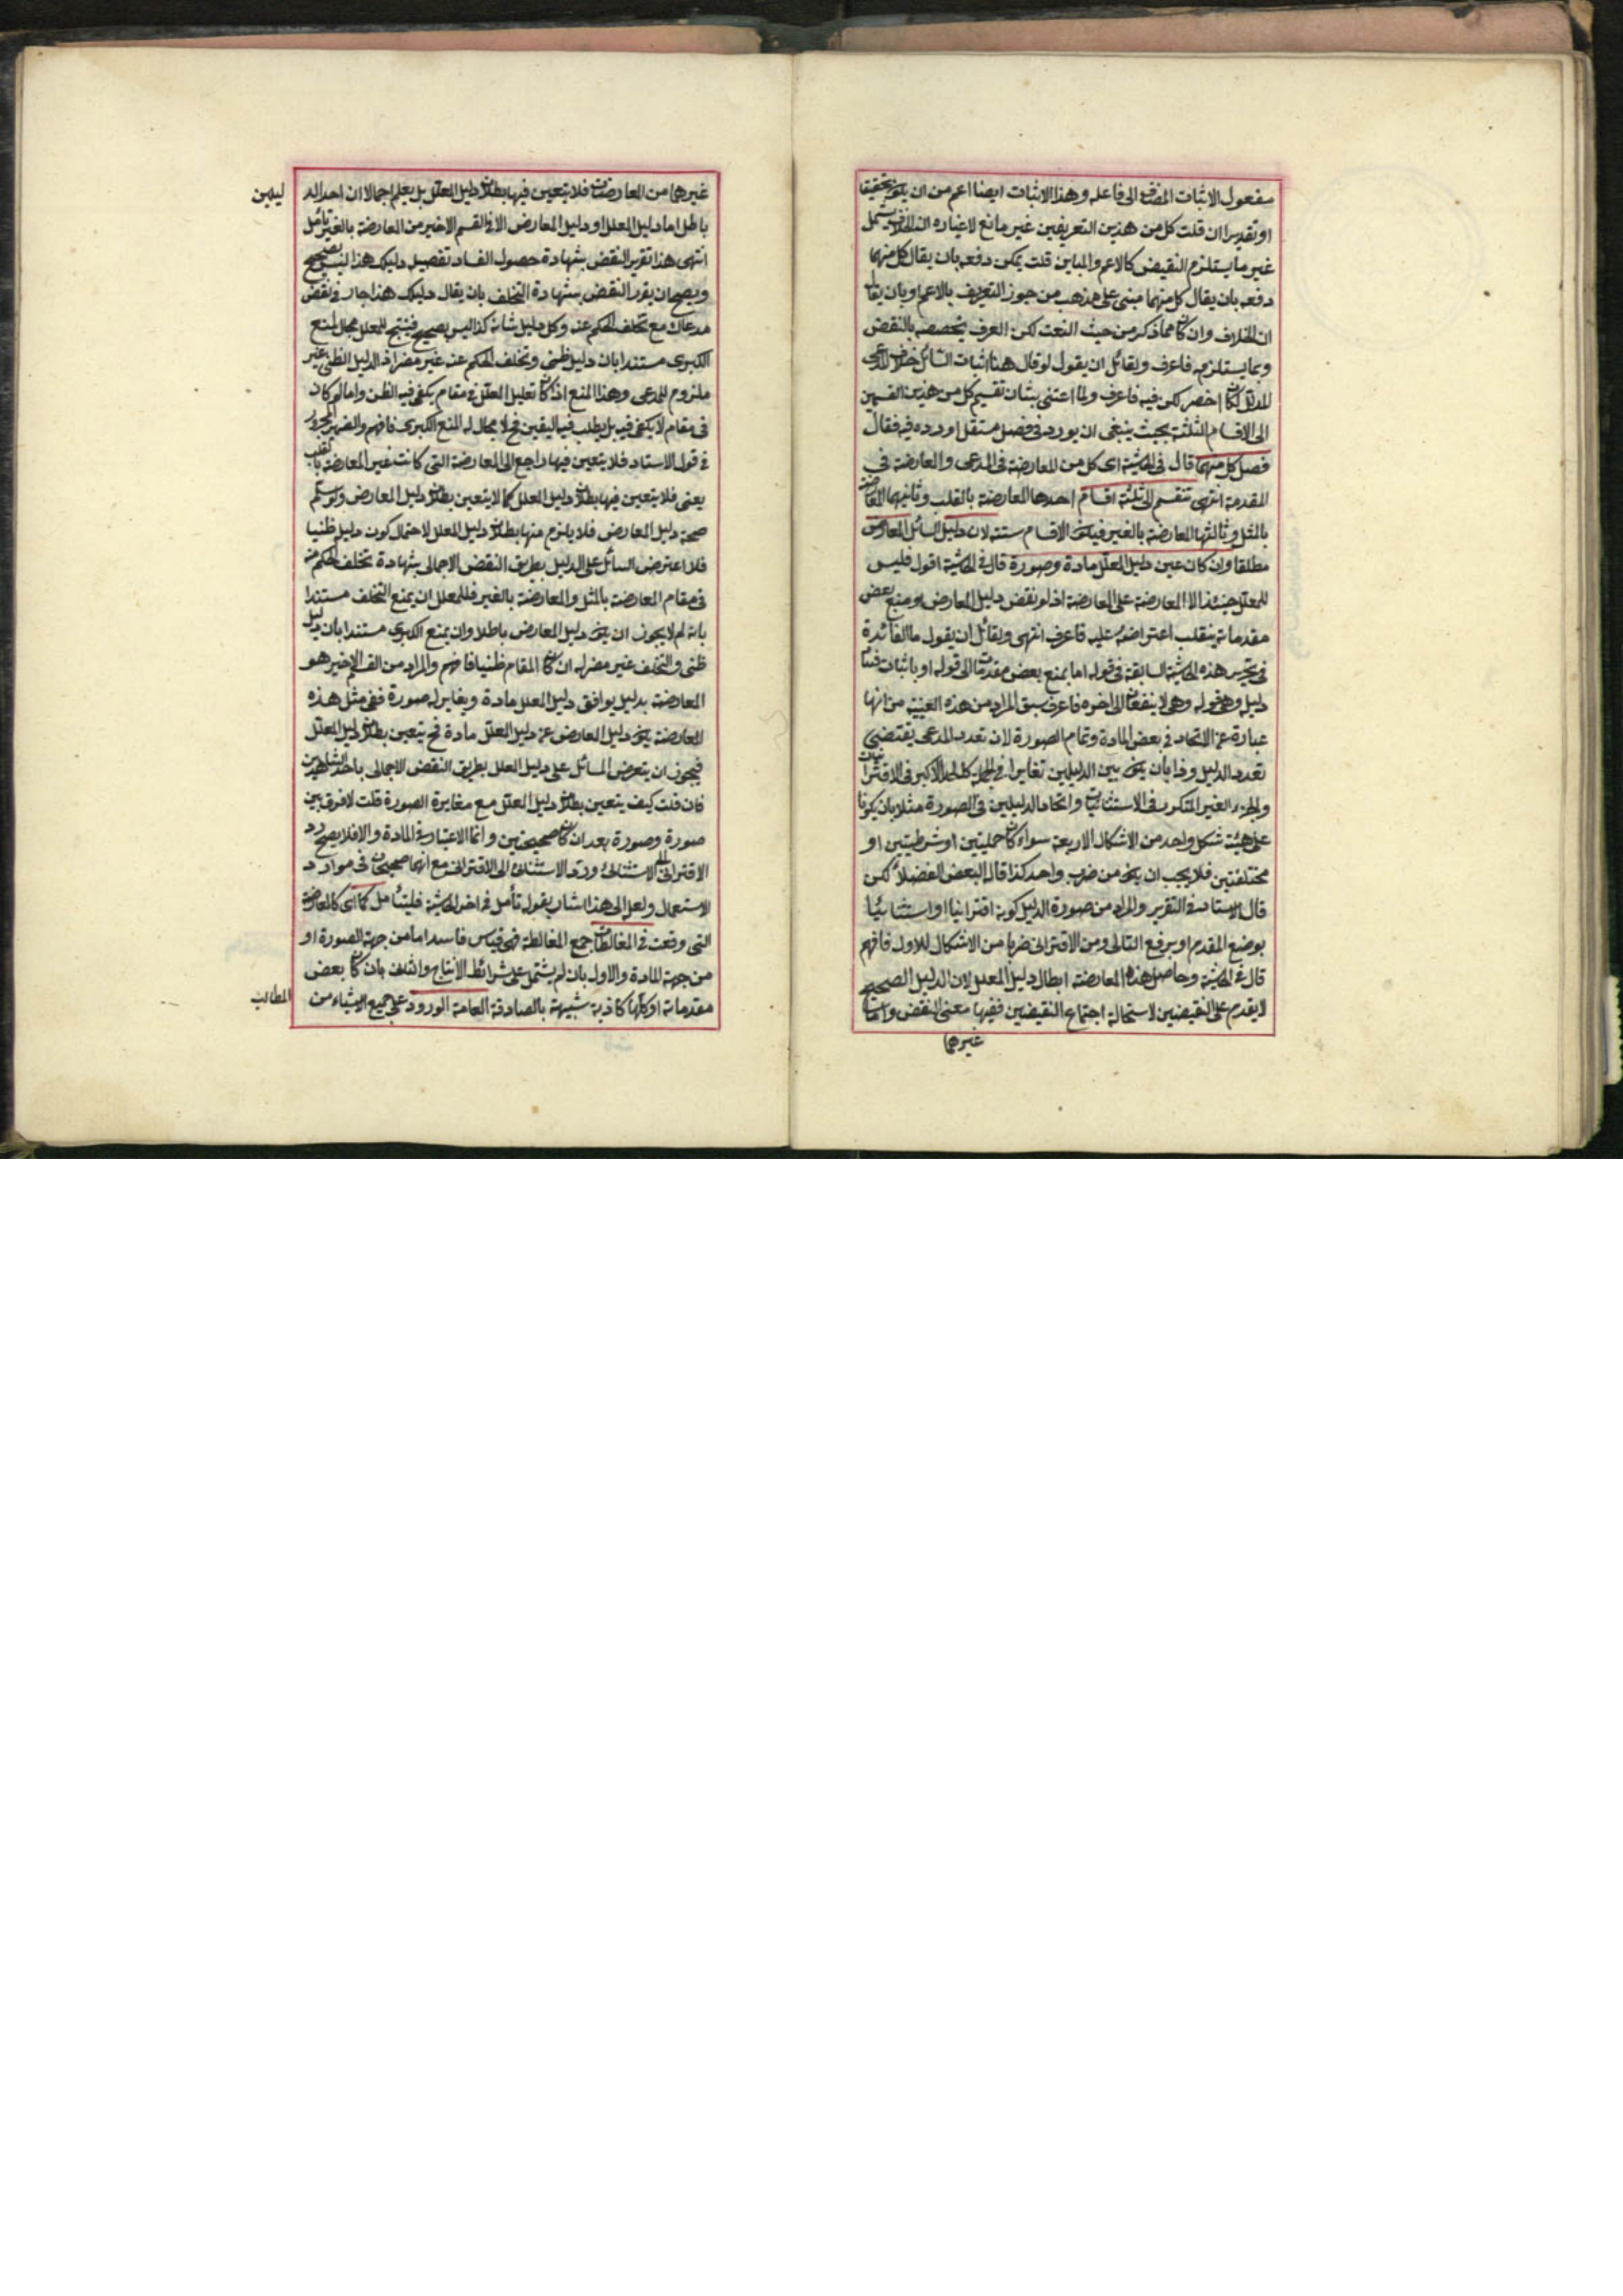 مفعول الاثبات المضاف الى فاعله وهذا الاثبات ايضا اعم من ان يكون تحقيقا
او تقديرا ان قلت كل من هذين التعريفين غير مانع لاغياره اذ الخلاف يشمل
غير ما يستلزم النقيض كالاعم والمباين قلت يمكن دفعه بان يقال كل منهما
دفعه بان يقال كل منهما مبنى على مذهب من جوز التعريف بالاعم او بان يقال
ان الخلاف وان كان عما ذكر من حيث النعت لكن العرف يخصصه بالنقض
وبما يستلزمه فاعرف ولقائل ان يقول لو قال هنا اثبات السائل خلاف المدعى
المدلل لكان اخصر لكن فيه فاعرف ولما اعتنى بشان تقسيم كل من هذين القسمين
الى الاقسام الثلثة بحيث ينبغى ان يورد فى فصل مستقل اورده فيه فقال
فصل كل منهما قال فى الحاشية اى كل من المعارضة فى المدعى والمعارضة فى
المقدمة انتهى تنقسم الى ثلثة اقسام احدها المعارضة بالقلب وثانيها المعارضة
بالمثل وثالثها المعارضة بالغير فيكون الاقسام ستة لان دليل السائل المعارض
مطلقا وان كان عين دليل المعلل مادة وصورة قال فى الحاشية اقول فليس
للمعلل حينئذ الا المعارضة على المعارضة اذ لو نقض دليل المعارض او منع بعض
مقدماته ينقلب اعتراضه عليه فاعرف انتهى ولقائل ان يقول ما الفائدة
فى تحرير هذه الحاشية السابقة فى قوله اما بمنع بعض مقدماته الى قوله او باثبات
دليله وهى قوله وهى لا ينفعك الى اخره فاعرف سبق المراد من هذه العينية من انها
عبارة عن الاتحاد فى بعض المادة وتمام الصورة لان تعدد المدعى يقتضى
تعدد الدليل وذا بان يكون بين الدليلين تغاير فى الجملة كالحد الاكبر فى الاقترانيات
والجزء الغير المتكرر فى الاستثنائيات واتحاد الدليلين فى الصورة مثلا بان يكونا
على هيئة شكل واحد من الاشكال الاربعة سواء كانا حمليتين او شرطيتين او
مختلفتين فلا يجب ان يكون من ضرب واحد كذا قال البعض الفضلاء لكن
قال الاستاد فى التقرير والمراد من صورة الدليل كونه اقترانيا او استثنائيا
بوضع المقدم او برفع التالى ومن الاقترانى ضربا من الاشكال للاول فافهم
قال فى الحاشية وحاصل هذه المعارضة ابطال دليل المعلل لان الدليل الصحيح
لا يقدم على النقيضين لاستحالة اجتماع النقيضين ففيها معنى النقض واما
غيرها
غيرها من المعارضات فلا يتعين فيها بطلان دليل المعلل بل يعلم اجمالا ان احد الد
ليلين
باطل اما دليل المعلل او دليل المعارض الا فى القسم الاخير من المعارضة بالغير تأمل
انتهى هذا تقرير النقض بشهادة حصول الفساد تفصيل دليلك هذا ليس بصحيح
ويصح ان يقرر النقض بشهادة التخلف بان يقال دليلك هذا جار فى نقض
مدعاك مع تخلف الحكم عنه وكل دليل شانه كذا ليس بصحيح فينتج للمعلل مجال المنع
الكبرى مستندا بان دليل ظنى وتخلف الحكم عنه غير مضر اذ الدليل الظنى غير
ملزوم للمدعى وهذا المنع اذا كان تعليل المعلل فى مقام يكفى فيه الظن واما لو كان
فى مقام لا يكفى فيه بل يطلب فيه اليقين فح لا مجال له المنع الكبرى فافهم والضمير المجرور
فى قول الاستاد فلا يتعين فيها راجع الى المعارضة التى كانت غير المعارضة بالقلب
يعنى فلا يتعين فيها بطلان دليل المعلل كما لا يتعين بطلان دليل المعارض ولو سلم
صحة دليل المعارض فلا يلزم منها بطلان دليل المعلل لاحتمال كون دليله ظنيا
فلا اعترض السائل على الدليل بطريق النقض الاجمالى بشهادة تخلف الحكم عنه
فى مقام المعارضة بالمثل والمعارضة بالغير فللمعلل ان يمنع التخلف مستندا
بانه لم لا يجوز ان يكون دليل المعارض باطلا وان يمنع الكبرى مستندا بان دليل
ظنى والتخلف غير مضر له ان كان المقام ظنيا فافهم والمراد من القسم الاخير هو
المعارضة بدليل يوافق دليل المعلل مادة ويغايره صورة ففى مثل هذه
المعارضة يكون دليل المعارض عين دليل المعلل مادة فح يتعين بطلان دليل المعلل
فيجوز ان يتعرض السائل على دليل المعلل بطريق النقض الاجمالى باحد الشاهدين
فان قلت كيف يتعين بطلان دليل المعلل مع مغايرة الصورة قلت لا فرق بين
صورة وصورة بعد ان كانا صحيحتين وانما الاعتبار فى المادة والا فلا يصح رد
الاقترانى الى الاستثنائى ورد الاستثنائى الى الاقترانى مع انهما صحيحان فى موارد
الاستعمال ولعل الى هذا اشار بقوله تأمل فى اخر الحاشية فليتأمل كما اى كالمعارضة
التى وقعت فى المغالطات جمع المغالطة فهى قياس فاسد اما من جهة الصورة او
من جهة المادة والاول بان لم يشتمل على شرائط الانتاج والثانى بان كان بعض
مقدماته او كلها كاذبة شبيهة بالصادقة العامة الورود على جميع الاشياء من
المطالب